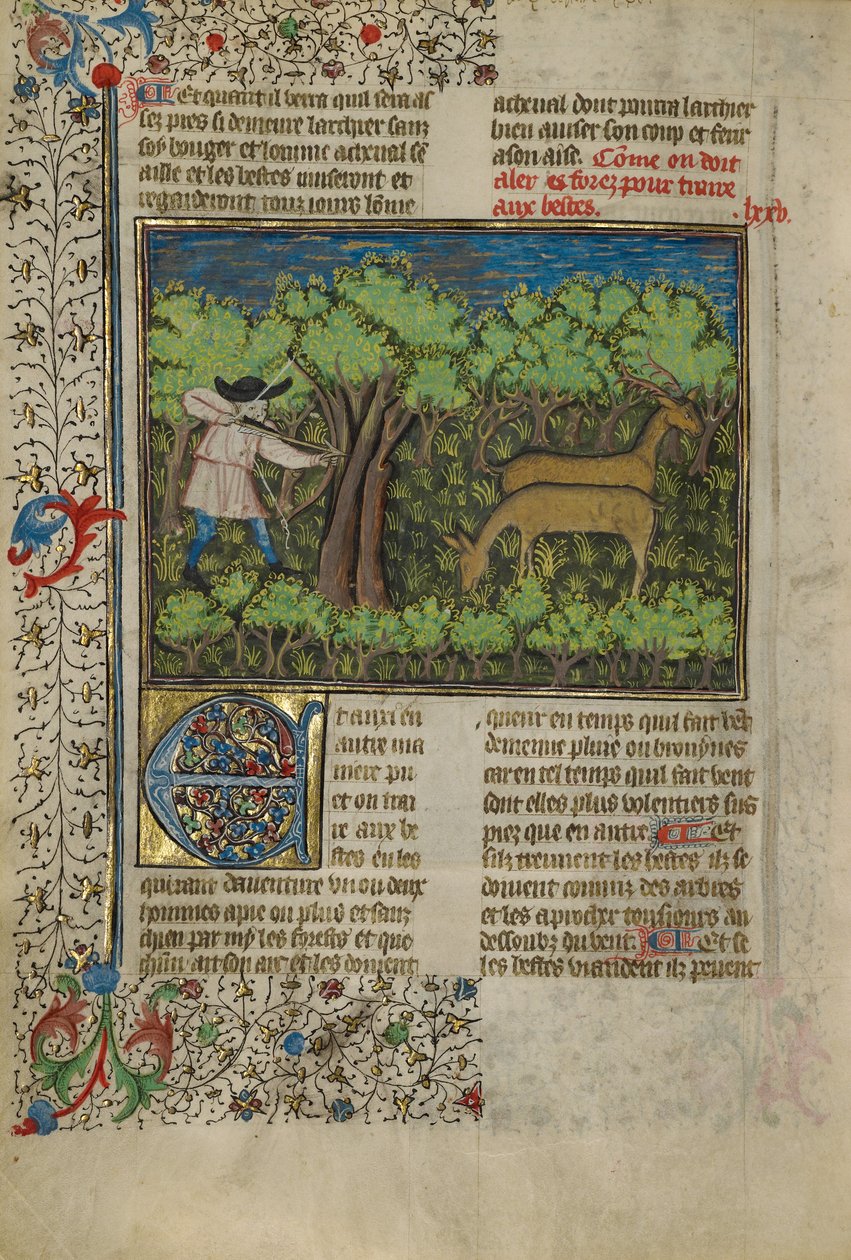 Et quant il verra quil sera as
sez pres si demeure larchier sanz
soy bouger et lomme acheval sen
aille et les bestes museront et
regarderont touz iours lomme
acheval dont pourra larchier
bien auiser son coup et ferir
a son aise. Cōme on doit
aler es forez pour traire
aux bestes. .lxxv.
Et auxi en
autre ma
niere pu
et on trai
re aux be
stes en les
querant dauenture vn ou deux
hommes apie ou plus et sanz
chien par my les forests et que
chūn ait son arc et les doiuent
querir en temps quil fait vent
de menue pluie ou brouynes
car en tel temps quil fait vent
sont elles plus volentiers sus
piez que en autre Et
silz treuuent les bestes ilz se
doiuent couurir des arbres
et les aprocher tousiours au
dessoubz du vent. Et se
les bestes viandent ilz peuent